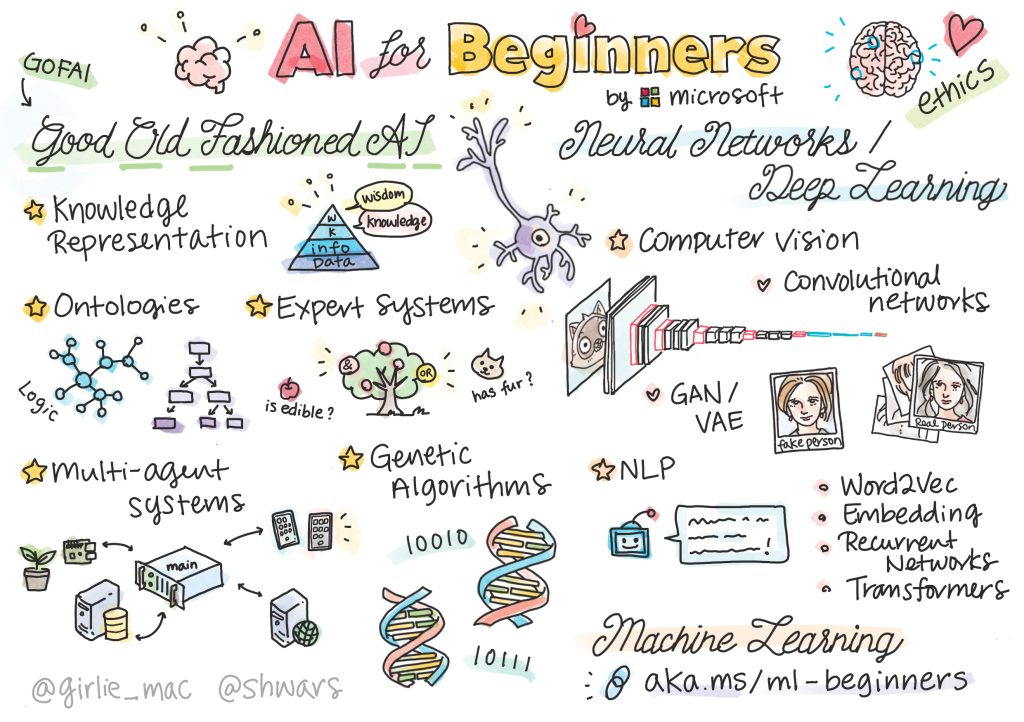 AI for Beginners
by microsoft
GOFAI
ethics
Good Old Fashioned AI
Knowledge
Representation
wisdom
knowledge
W
K
info
Data
Ontologies
Logic
Expert systems
&
OR
is edible?
has fur?
Multi-agent
systems
main
Genetic
Algorithms
10010
10111
Neural Networks /
Deep Learning
Computer Vision
Convolutional
networks
GAN/
VAE
fake person
Real person
NLP
Word2Vec
Embedding
Recurrent
Networks
Transformers
Machine Learning
aka.ms/ml-beginners
@girlie_mac @shwars